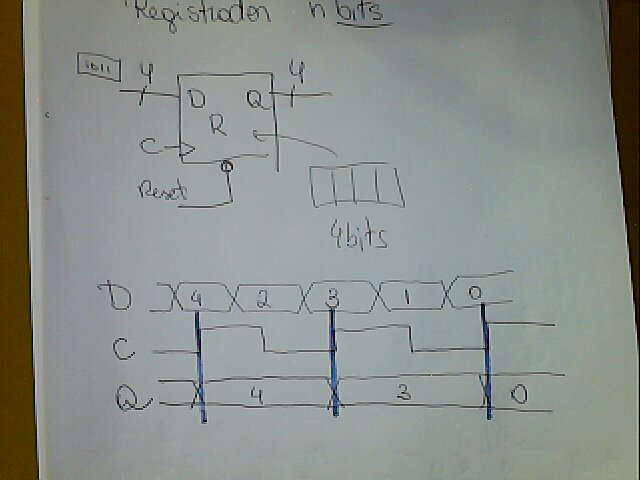 Registrador n bits
1011 4 4
D Q
R
C
Reset
4bits
D 4 2 3 1 0
C
Q 4 3 0